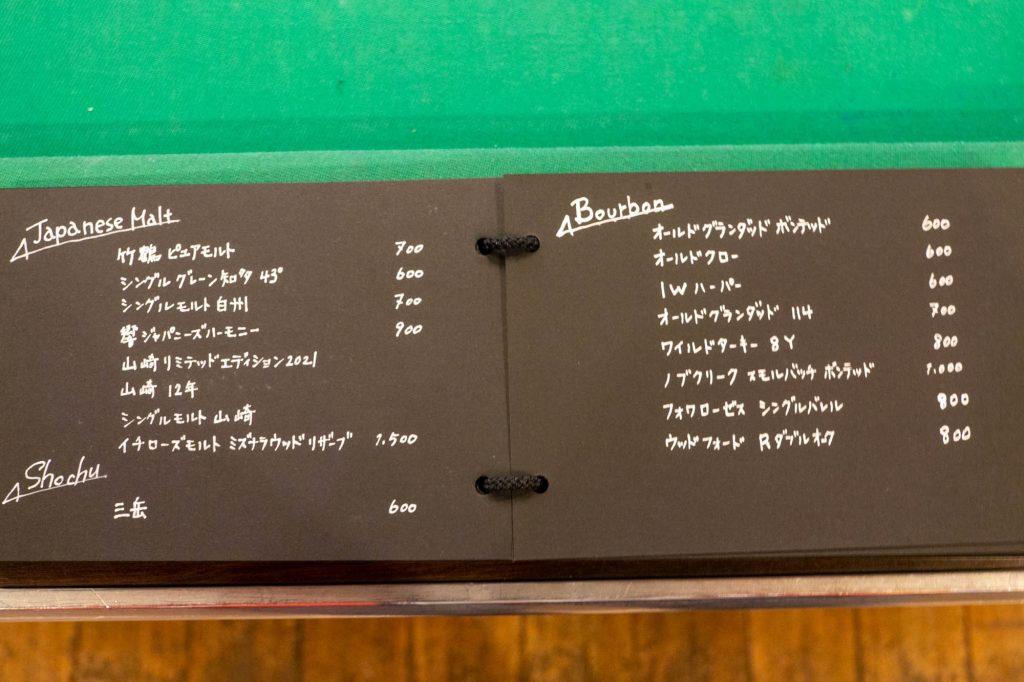 Japanese Malt
竹鶴 ピュアモルト 700
シングル グレーン 知多 43° 600
シングル モルト 白州 700
響 ジャパニーズハーモニー 900
山崎 リミテッドエディション2021
山崎 12年
シングル モルト 山崎
イチローズモルト ミズナラウッドリザーブ 1.500
Shochu
三岳 600
Bourbon
オールドグランダッド ボンテッド 600
オールドクロー 600
I W ハーパー 600
オールドグランダッド 114 700
ワイルドターキー 8Y 800
ノブクリーク スモルバッチ ボンテッド 1.000
フォワローゼス シングルバレル 800
ウッドフォード R ダブルオーク 800